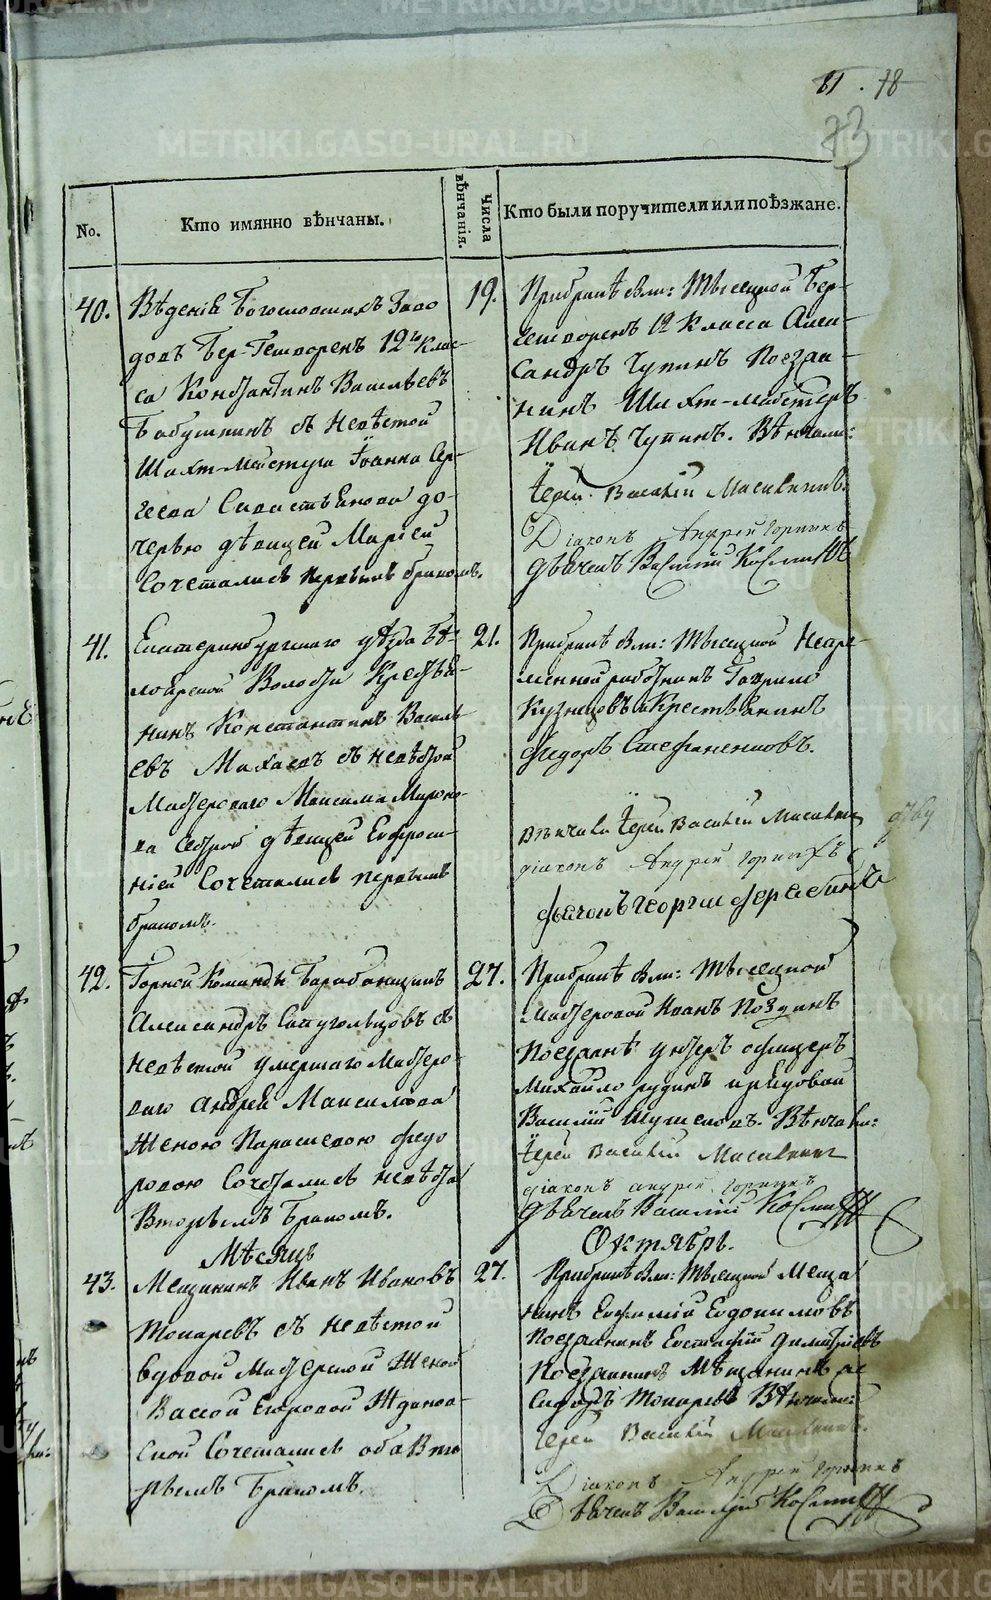 81. 78
73
No.
Кто имянно вѣнчаны.
Числа вѣнчанія.
Кто были поручители или поѣзжане.
40.
Вѣденія Богословскихъ Заво
довъ Бер-Гешворенъ 12го Клас-
са Константинъ Васильевъ
Бабушкинъ съ невѣстой
Шахт-мейстура Іоанна Сер-
геева Савастьянова до-
черью дѣвицей Маріей
Сочетались первымъ бракомъ.
19.
При бракѣ были: Тысецкой Бер-
гешворенъ 12 Класса Алек-
сандръ Чупинъ Поезжа-
нинъ Шихт-мейстеръ
Иванъ Чупинъ. Вѣнчали:
Іерей Василій Масленниковъ
Діаконъ Андрей Горныхъ
Дьячекъ Василій Космин
41.
Екатеринбургскаго уѣзда Бѣ-
лоярской Волости Крестья-
нинъ Константинъ Василь
евъ съ невѣстой
Мастероваго Максима Мироно-
ва сестрой дѣвицей Евфроси-
ніей Сочетались первымъ
бракомъ.
21.
При бракѣ были: Тысецкой Непре-
менной работникъ Гаврило
Кузнецовъ и Крестьянинъ
Федоръ Стефаненковъ.
вѣнчали Іерей Василій Масленник
діаконъ Андрей Горныхъ
дьячокъ Георгий
42.
Горной Команды Барабанщикъ
Александръ съ
невѣстой умершаго Мастеро-
ваго Андрея Максимова
Женою Параскевою Федо
ровою Сочетались невѣста
Вторымъ Бракомъ.
27.
При бракѣ были: Тысецкой
мастеровой Иванъ
Поезжане унтеръ офицеръ
Михайло Рудинъ и рядовой
Василій Вѣнчали:
Іерей Василій Масленник
діаконъ Андрей Горныхъ
Дьячекъ Василій Космин
Мѣсяцъ
Октябрь.
43.
Мещанинъ Иванъ Ивановъ
Токаревъ съ невѣстой
вдовой Мастерской Женой
Вассой Егоровой Жданов-
ской Сочетались оба Вто
рымъ Бракомъ.
27.
При бракѣ были: Тысецкой Меща
нинъ Евфимій Евдокимовъ
Поезжанинъ Евстафій Димитріевъ
Поезжанинъ Мѣщанинъ
Токаревъ Вѣнчали:
Іерей Василій Масленник
Діаконъ Андрей Горныхъ
Дьячекъ Василій Космин
METRIKI.GASO-URAL.RU